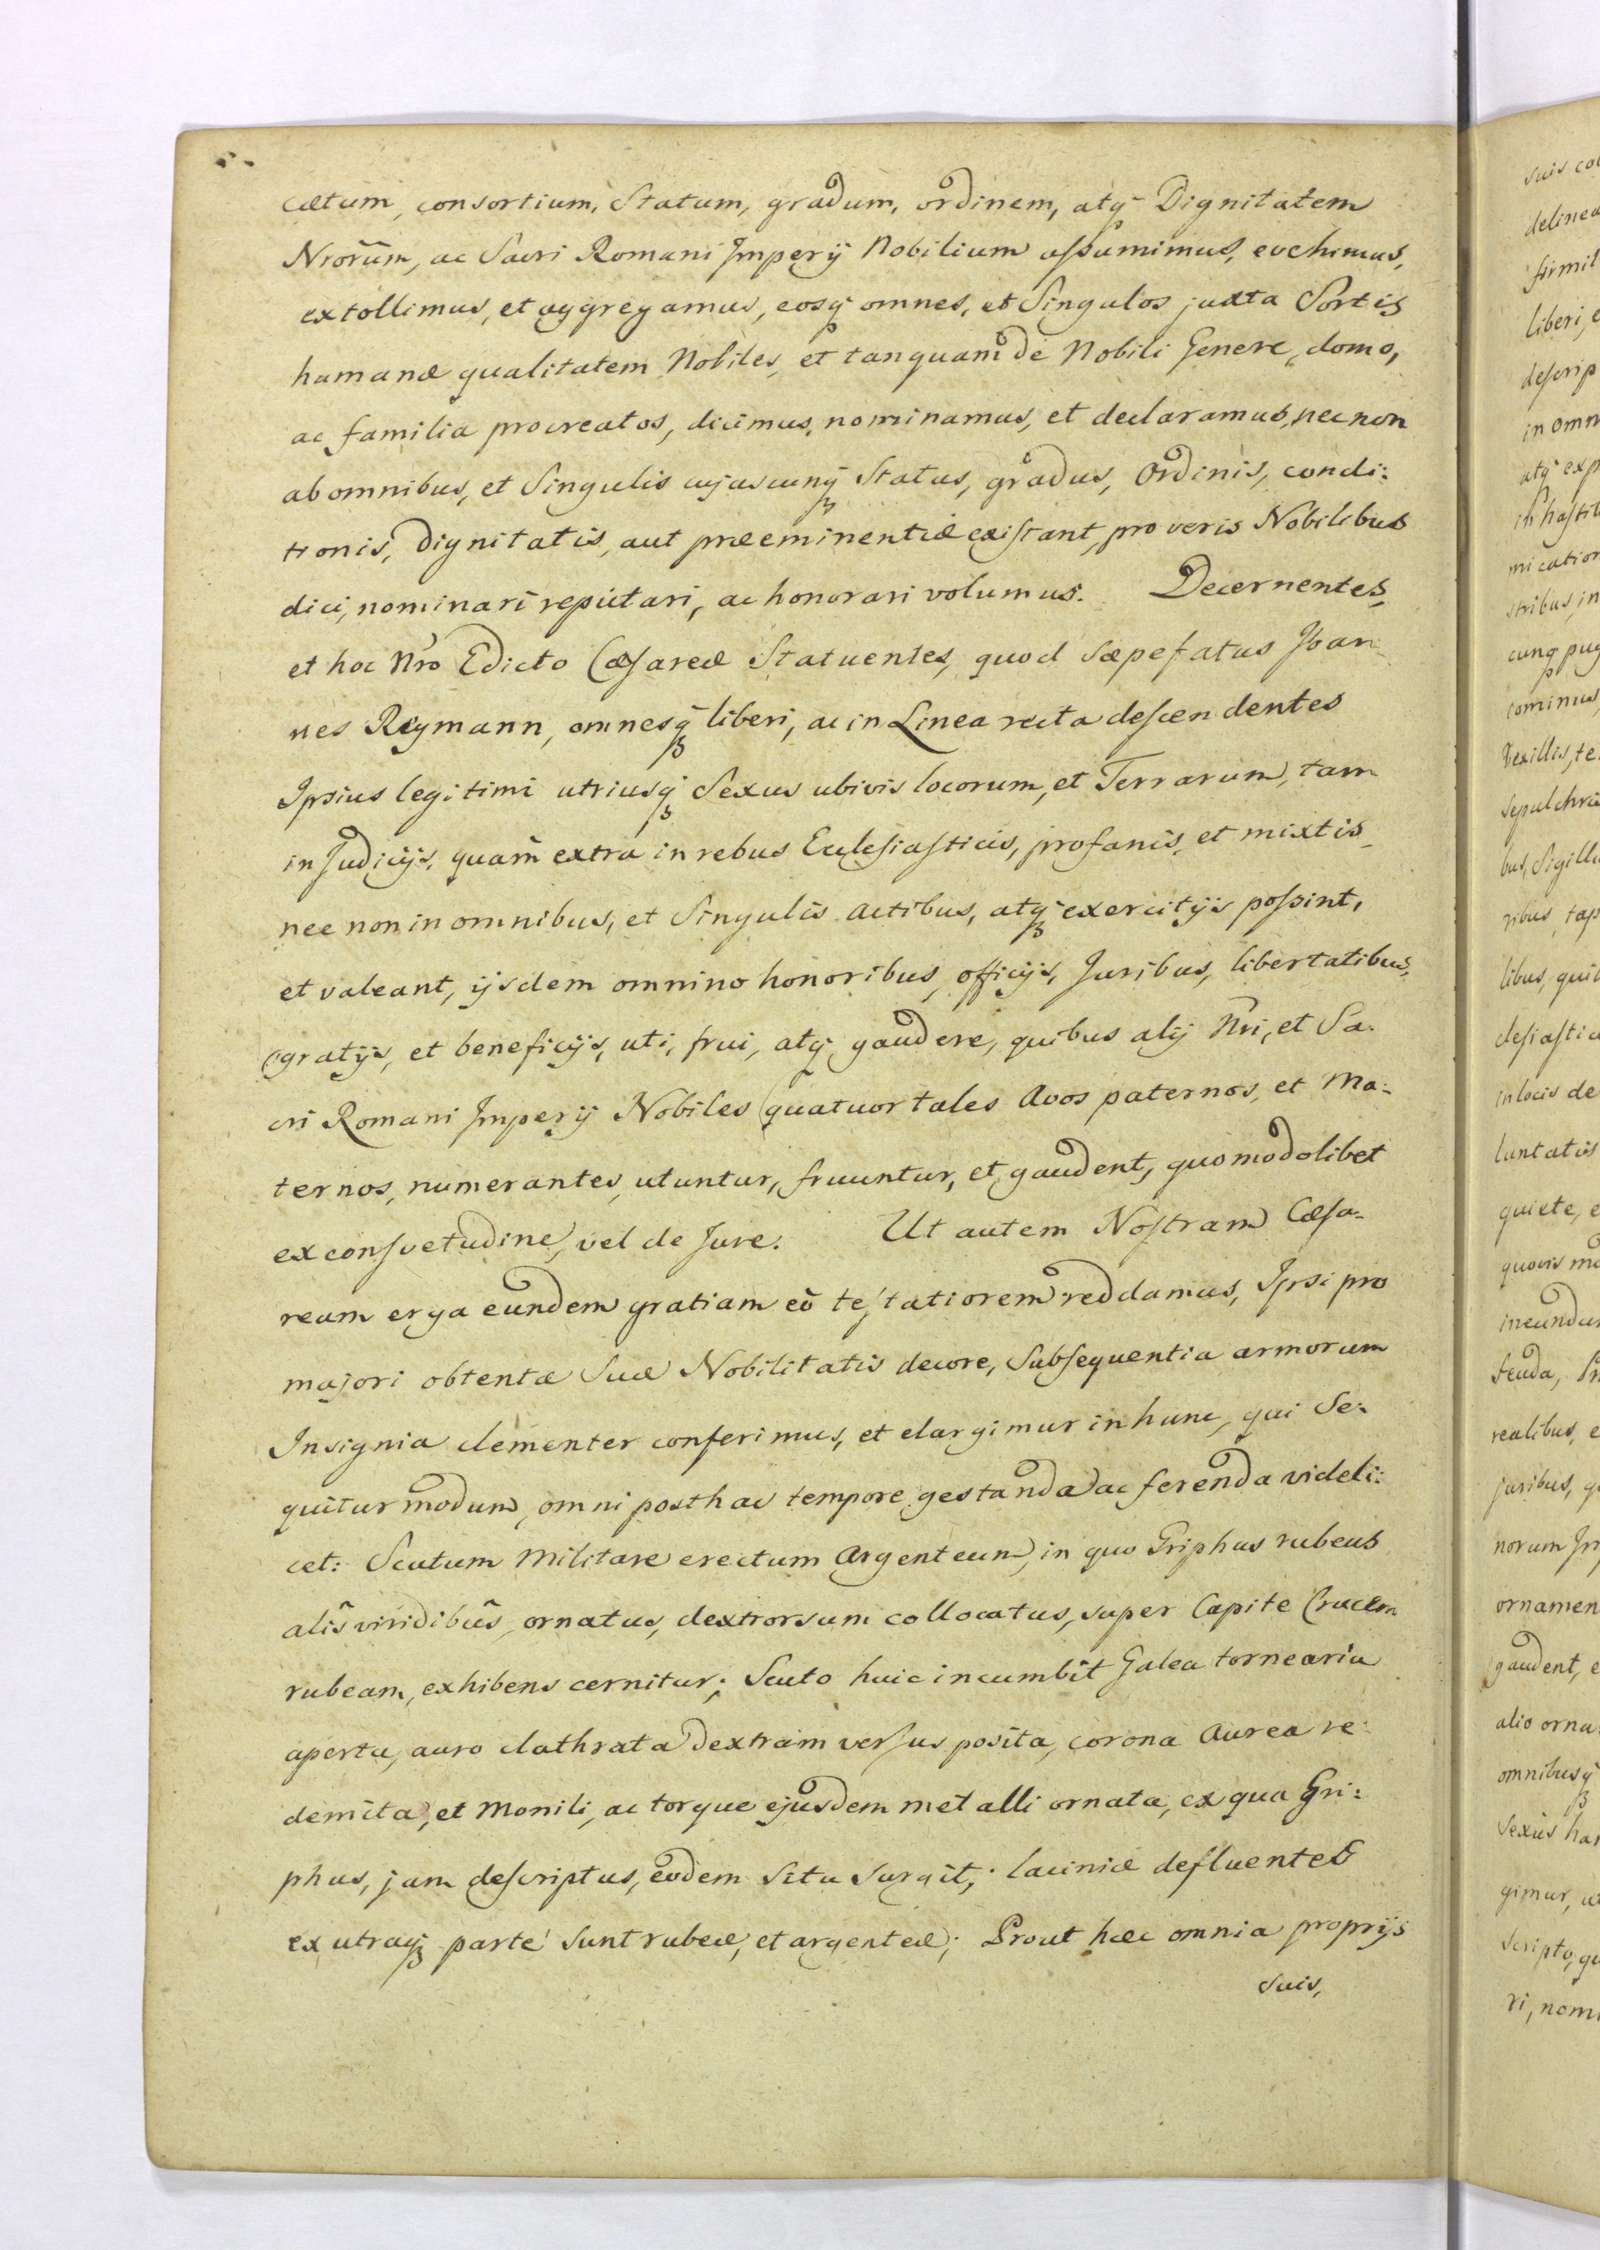 cætum, consortium, Statum, gradum, ordinem, atq̃ Dignitatem
Nrorũm, ac Sacri Romani Imperÿ Nobilium assumimus, evehimus,
extollimus, et aggregamus, eosq̃ omnes, et Singulos juxta Sortis
humanæ qualitatem Nobiles, et tanquam de Nobili Genere, domo,
ac familia procreatos, dicimus, nominamus, et declaramus, nec non
ab omnibus, et Singulis cujuscunq̃ Status, gradus, Ordinis, condi:
tionis, Dignitatis, aut præeminentiæ existant, pro veris Nobilibus
dici, nominari reputari, ac honorari volumus. Decernentes,
et hoc Nr̃o Edicto Cæsareæ Statuentes, quod sæpefatus Joan
nes Reymann, omnesq̃ liberi, ac in Linea recta descendentes
Ipsius legitimi utriusq̃ Sexus ubivis locorum, et Terrarum, tam
in Judicijs, quam extra in rebus Ecclesiasticis, profanis, et mixtis
nec non in omnibus, et Singulis actibus, atq̃ exercitÿs possint,
et valeant, ÿsdem omnino honoribus, officÿs, Juribus, libertatibus,
gratÿs, et beneficÿs, uti, frui, atq̃ gaudere, quibus alÿ Nr̃i, et Sa.
cri Romani Imperÿ Nobiles quatuor tales Avos paternos, et Ma:
ternos, numerantes, utuntur, fruuntur, et gaudent, quomodolibet
ex consvetudine, vel de Jure. Ut autem Nostram Cæsa-
ream erga eundem gratiam eò testatiorem reddamus, Ipsi pro
majori obtentæ Suæ Nobilitatis decore, Subsequentia armorum
Insignia clementer conferimus, et elargimur in hunc, qui Se:
quitur modum, omni posthac tempore gestanda ac ferenda videli:
cet: Scutum Militare erectum Argenteum, in quo Griphus rubeus
alis viridibus, ornatus, dextrorsum collocatus, super Capite Crucem
rubeam, exhibens cernitur; Scuto huic incumbit Galea tornearia
aperta, auro clathrata Dextram versus posita, corona Aurea re:
demita, et Monili, ac torque ejusdem metalli ornata, ex qua Gri:
phus, jam descriptus, eodem Situ surgit; laciniæ defluentes
ex utraq̃ parte sunt rubeæ, et argenteæ; Prout hæc omnia proprÿs
suis,